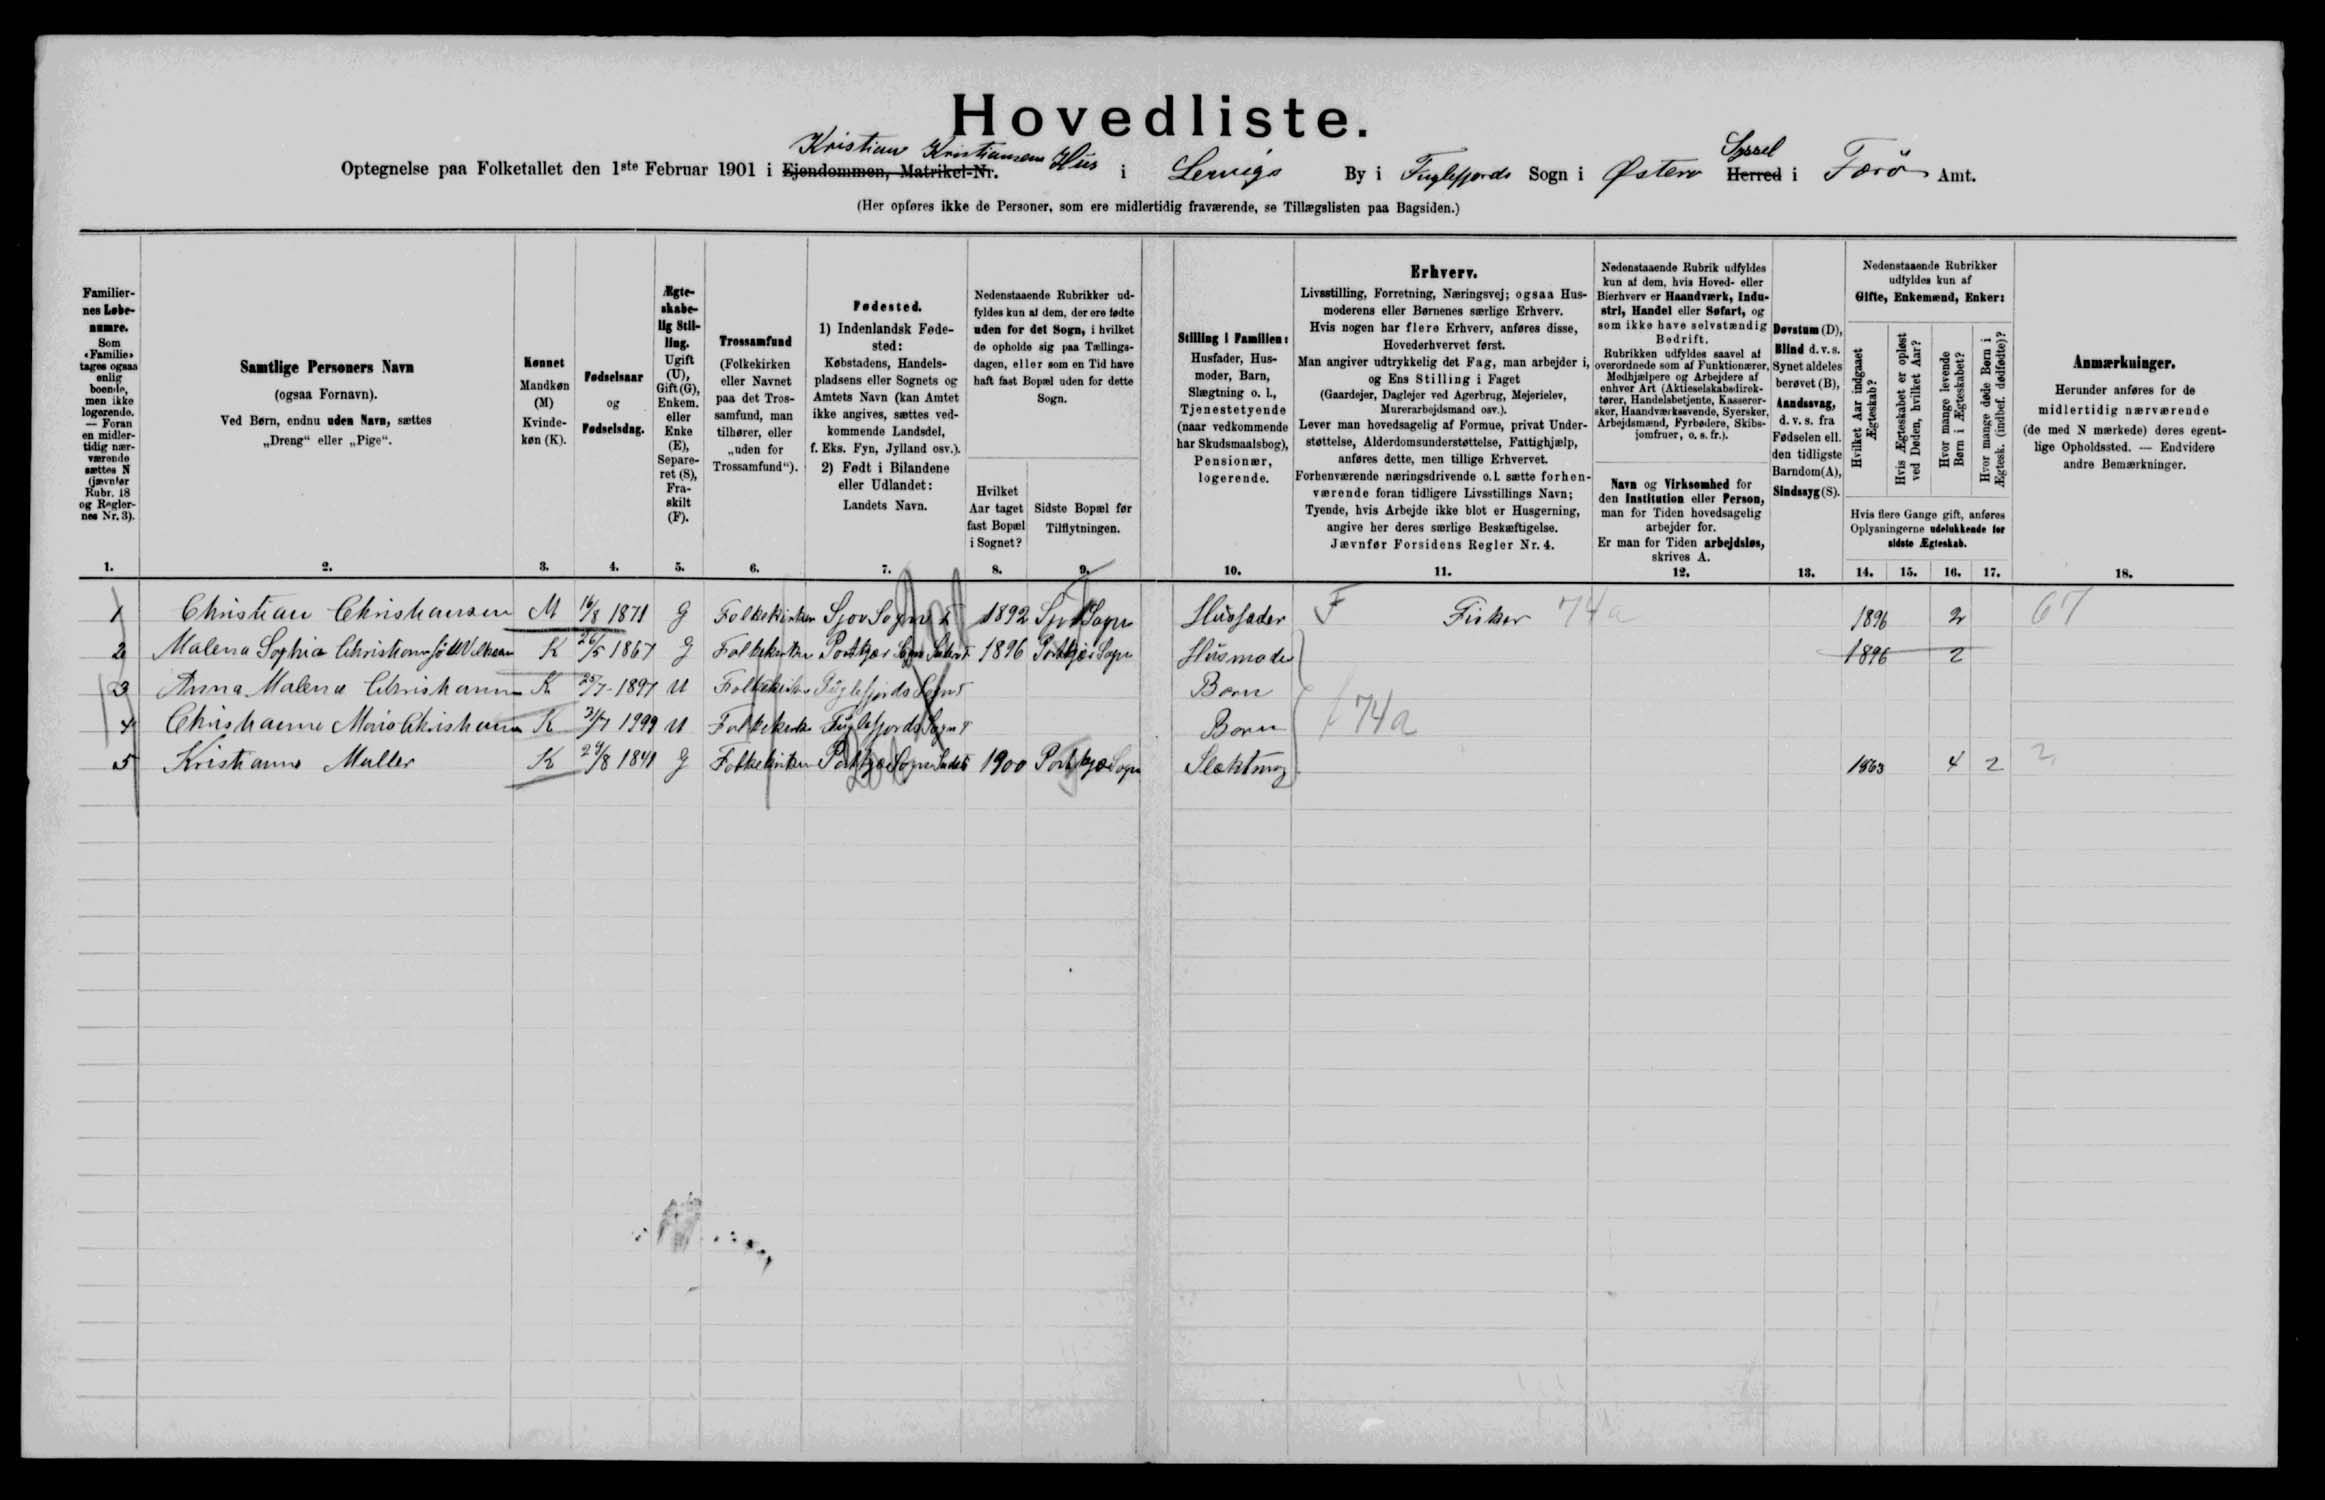 Hovedliste.
Kristian Kristiansens Hus
Syssel
Optegnelse paa Folketallet den 1ste Februar 1901 i Ejendommen, Matrikel-Nr. i Lervigs By i Fuglefjords Sogn i Østerø Herred i Færø Amt.
(Her opføres ikke de Personer, som ere midlertidig fraværende, se Tillægslisten paa Bagsiden.)
Familiernes Løbenumre.
Som «Familie» tages ogsaa enlig boende, men ikke logerende. — Foran en midlertidig nærværende sættes N (jævnfør Rubr. 18 og Reglernes Nr. 3).
1.
Samtlige Personers Navn
(ogsaa Fornavn).
Ved Børn, endnu uden Navn, sættes
„Dreng“ eller „Pige“.
2.
Kønnet
Mandkøn (M)
Kvindekøn (K).
3.
Fødselsaar
og
Fødselsdag.
4.
Ægteskabelig Stilling.
Ugift (U), Gift (G), Enkem. eller Enke (E), Separeret (S), Fraskilt (F).
5.
Trossamfund
(Folkekirken eller Navnet paa det Trossamfund, man tilhører, eller „uden for Trossamfund“).
6.
Fødested.
1) Indenlandsk Fødested:
Købstadens, Handelspladsens eller Sognets og Amtets Navn (kan Amtet ikke angives, sættes vedkommende Landsdel, f. Eks. Fyn, Jylland osv.).
2) Født i Bilandene eller Udlandet:
Landets Navn.
7.
Nedenstaaende Rubrikker udfyldes kun af dem, der ere fødte uden for det Sogn, i hvilket de opholde sig paa Tællingsdagen, eller som en Tid have haft fast Bopæl uden for dette Sogn.
Hvilket Aar taget fast Bopæl i Sognet?
8.
Sidste Bopæl før Tilflytningen.
9.
Stilling i Familien:
Husfader, Husmoder, Barn, Slægtning o. l., Tjenestetyende (naar vedkommende har Skudsmaalsbog), Pensionær, logerende.
10.
Erhverv.
Livsstilling, Forretning, Næringsvej; ogsaa Husmoderens eller Børnenes særlige Erhverv.
Hvis nogen har flere Erhverv, anføres disse, Hovederhvervet først.
Man angiver udtrykkelig det Fag, man arbejder i, og Ens Stilling i Faget
(Gaardejer, Daglejer ved Agerbrug, Mejerielev, Murerarbejdsmand osv.).
Lever man hovedsagelig af Formue, privat Understøttelse, Alderdomsunderstøttelse, Fattighjælp, anføres dette, men tillige Erhvervet.
Forhenværende næringsdrivende o. l. sætte forhenværende foran tidligere Livsstillings Navn; Tyende, hvis Arbejde ikke blot er Husgerning, angive her deres særlige Beskæftigelse.
Jævnfør Forsidens Regler Nr. 4.
11.
Nedenstaaende Rubrik udfyldes kun af dem, hvis Hoved- eller Bierhverv er Haandværk, Industri, Handel eller Søfart, og som ikke have selvstændig Bedrift.
Rubrikken udfyldes saavel af overordnede som af Funktionærer, Medhjælpere og Arbejdere af enhver Art (Aktieselskabsdirektører, Handelsbetjente, Kassererersker, Haandværkssvende, Syersker, Arbejdsmænd, Fyrbødere, Skibsjomfruer, o. s. fr.).
Navn og Virksomhed for den Institution eller Person, man for Tiden hovedsagelig arbejder for.
Er man for Tiden arbejdsløs, skrives A.
12.
Døvstum (D), Blind d. v. s. Synet aldeles berøvet (B), Aandssvag, d. v. s. fra Fødselen ell. den tidligste Barndom (A), Sindssyg (S).
13.
Nedenstaaende Rubrikker udfyldes kun af
Gifte, Enkemænd, Enker:
Hvilket Aar indgaaet Ægteskab?
Hvis Ægteskabet er opløst ved Døden, hvilket Aar?
Hvor mange levende Børn i Ægteskabet?
Hvor mange døde Børn i Ægtesk. (indbef. dødfødte)?
Hvis flere Gange gift, anføres Oplysningerne udelukkende for sidste Ægteskab.
14. 15. 16. 17.
Anmærkninger.
Herunder anføres for de midlertidig nærværende (de med N mærkede) deres egentlige Opholdssted. — Endvidere andre Bemærkninger.
18.
1 Christian Christiansen M 16/8 1871 G Folkekirken 1892 Husfader F Fisker 74a 1896 2 67
2 Malena Sophia K 26/5 1867 G Folkekirken 1896 Husmoder 1896 2
3 Anna Malena K 25/7 1897 U Folkekirken Fuglefjords Sogn Barn
4 K U Folkekirken Fuglefjords Sogn Barn 74a
5 Kristianne Muller K 29/8 1841 G Folkekirken 1900 Slæktning 1863 4 2 2